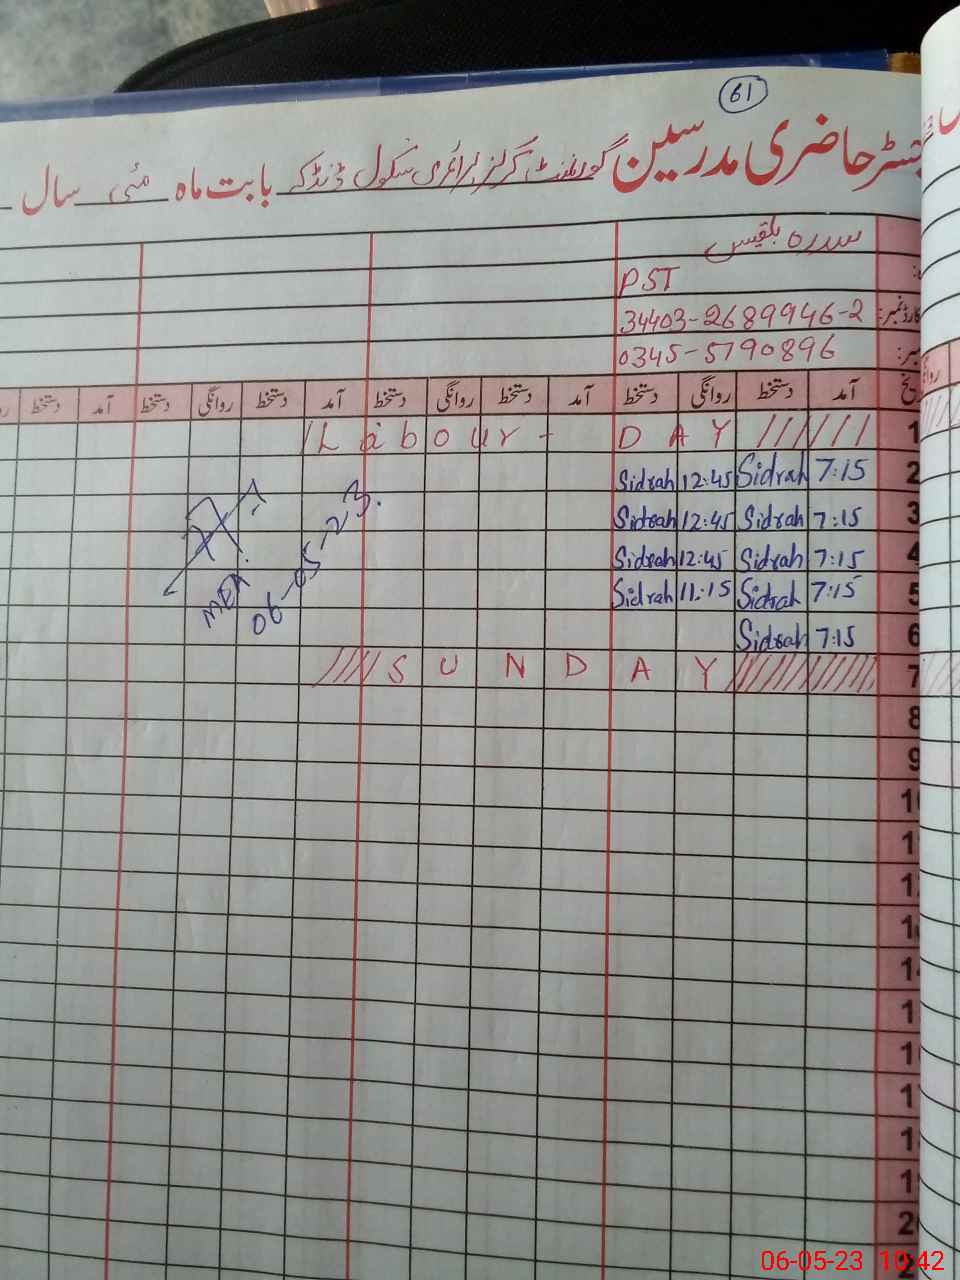 61
رجسٹر حاضری مدرسین گورنمنٹ گرلز پرائمری سکول ڈنڈکہ بابت ماہ مئی سال
سدرہ بلقیس
PST
کارڈ نمبر: 34403-2689946-2
نمبر: 0345-5790896
تاریخ آمد دستخط روانگی دستخط آمد دستخط روانگی دستخط آمد دستخط روانگی دستخط آمد دستخط
1 Labour - DAY
2 7:15 Sidrah 12:45 Sidrah
3 7:15 Sidrah 12:45 Sidrah
4 7:15 Sidrah 12:45 Sidrah
5 7:15 Sidrah 11:15 Sidrah
6 7:15 Sidrah
7 SUNDAY
MEA
06-05-23.
8
9
06-05-23 10:42